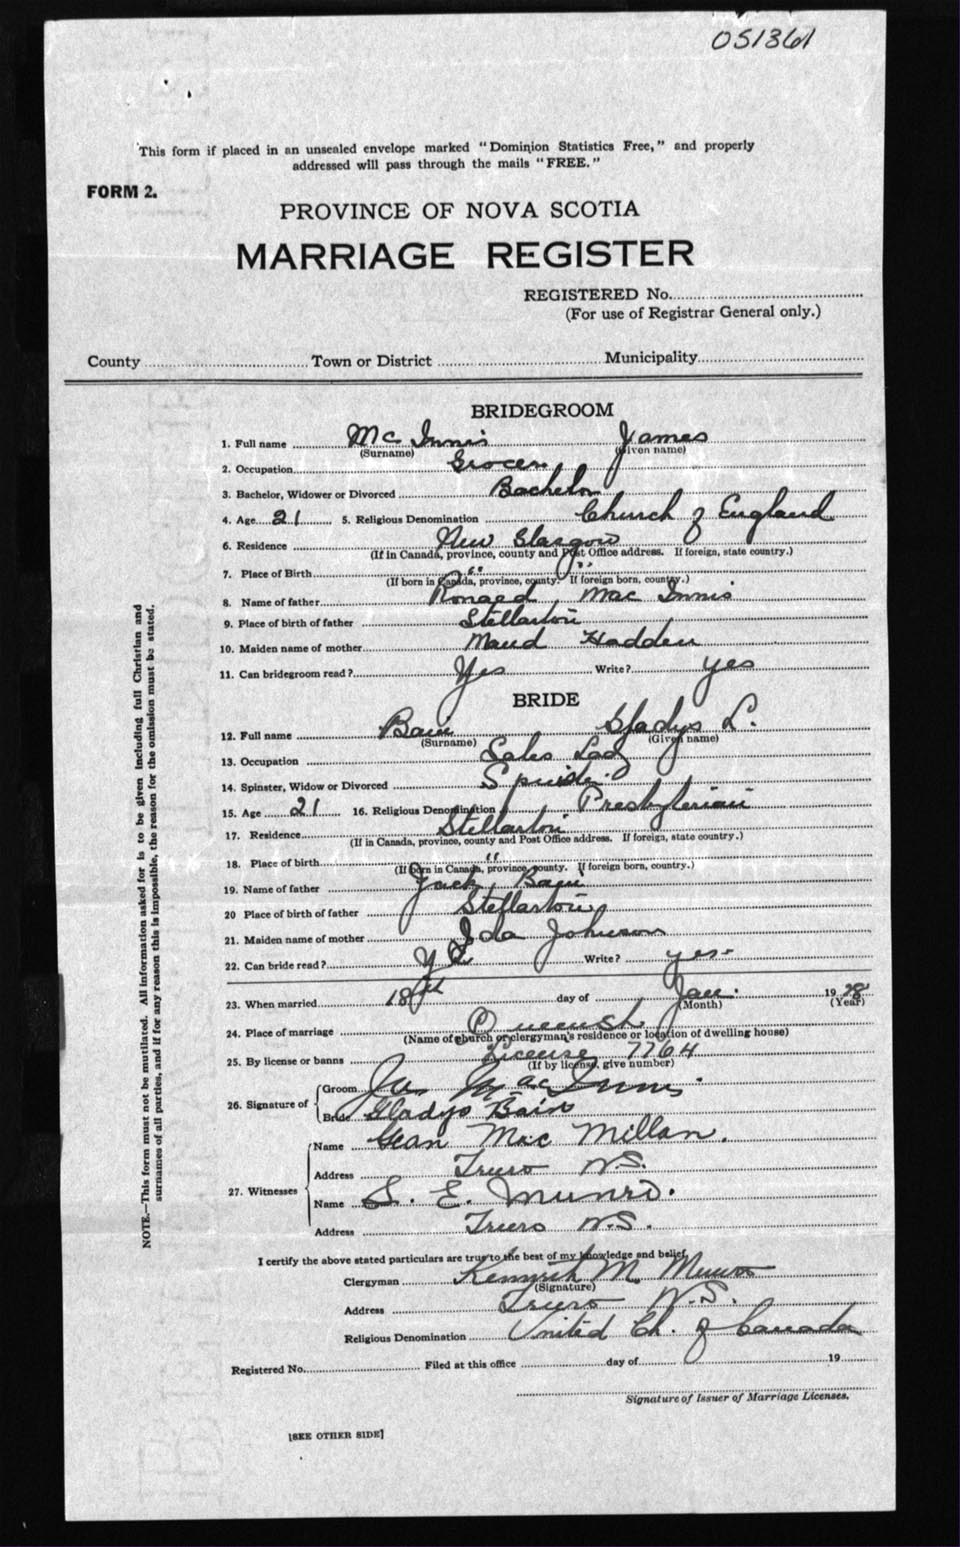 051361
This form if placed in an unsealed envelope marked "Dominion Statistics Free," and properly
addressed will pass through the mails "FREE."
FORM 2.
PROVINCE OF NOVA SCOTIA
MARRIAGE REGISTER
REGISTERED No.
(For use of Registrar General only.)
County Town or District Municipality
BRIDEGROOM
1. Full name Mc Innis James
(Surname) (Given name)
2. Occupation Grocer
3. Bachelor, Widower or Divorced Bachelor
4. Age 21 5. Religious Denomination Church of England
6. Residence New Glasgow
(If in Canada, province, county and Post Office address. If foreign, state country.)
7. Place of Birth " "
(If born in Canada, province, county. If foreign born, country.)
8. Name of father Ronald Mac Innis
9. Place of birth of father Stellarton
10. Maiden name of mother Maud Hadden
11. Can bridegroom read? Yes Write? yes
BRIDE
12. Full name Bain Gladys L.
(Surname) (Given name)
13. Occupation Sales Lady
14. Spinster, Widow or Divorced Spinster
15. Age 21 16. Religious Denomination Presbyterian
17. Residence Stellarton
(If in Canada, province, county and Post Office address. If foreign, state country.)
18. Place of birth "
(If born in Canada, province, county. If foreign born, country.)
19. Name of father Jack Bain
20 Place of birth of father Stellarton
21. Maiden name of mother Ida Johnson
22. Can bride read? Write? yes
23. When married 18th day of Jan. 1928
(Month) (Year)
24. Place of marriage
(Name of church or clergyman's residence or location of dwelling house)
25. By license or banns License 7764
(If by license, give number)
26. Signature of Groom Jas MacInnis
Bride Gladys Bain
27. Witnesses
Name Jean Mac Millan.
Address Truro N.S.
Name S. E. Munro.
Address Truro N.S.
I certify the above stated particulars are true to the best of my knowledge and belief,
Clergyman M. Munro
(Signature)
Address Truro N.S.
Religious Denomination United Ch. of Canada
Registered No. Filed at this office day of 19
Signature of Issuer of Marriage Licenses.
[SEE OTHER SIDE]
NOTE.—This form must not be mutilated. All information asked for is to be given including full Christian and
surnames of all parties, and if for any reason this is impossible, the reason for the omission must be stated.